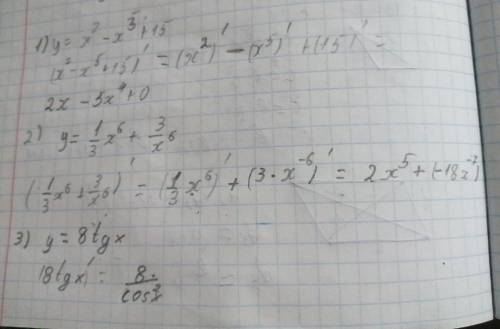 1) y = x² - x⁵ + 15
(x² - x⁵ + 15)' = (x²)' - (x⁵)' + (15)' =
2x - 5x⁴ + 0
2) y = 1/3 x⁶ + 3/x⁶
(1/3 x⁶ + 3/x⁶)' = (1/3 x⁶)' + (3 · x⁻⁶)' = 2x⁵ + (-18x⁻⁷)
3) y = 8tgx
(8tgx)' = 8/cos²x